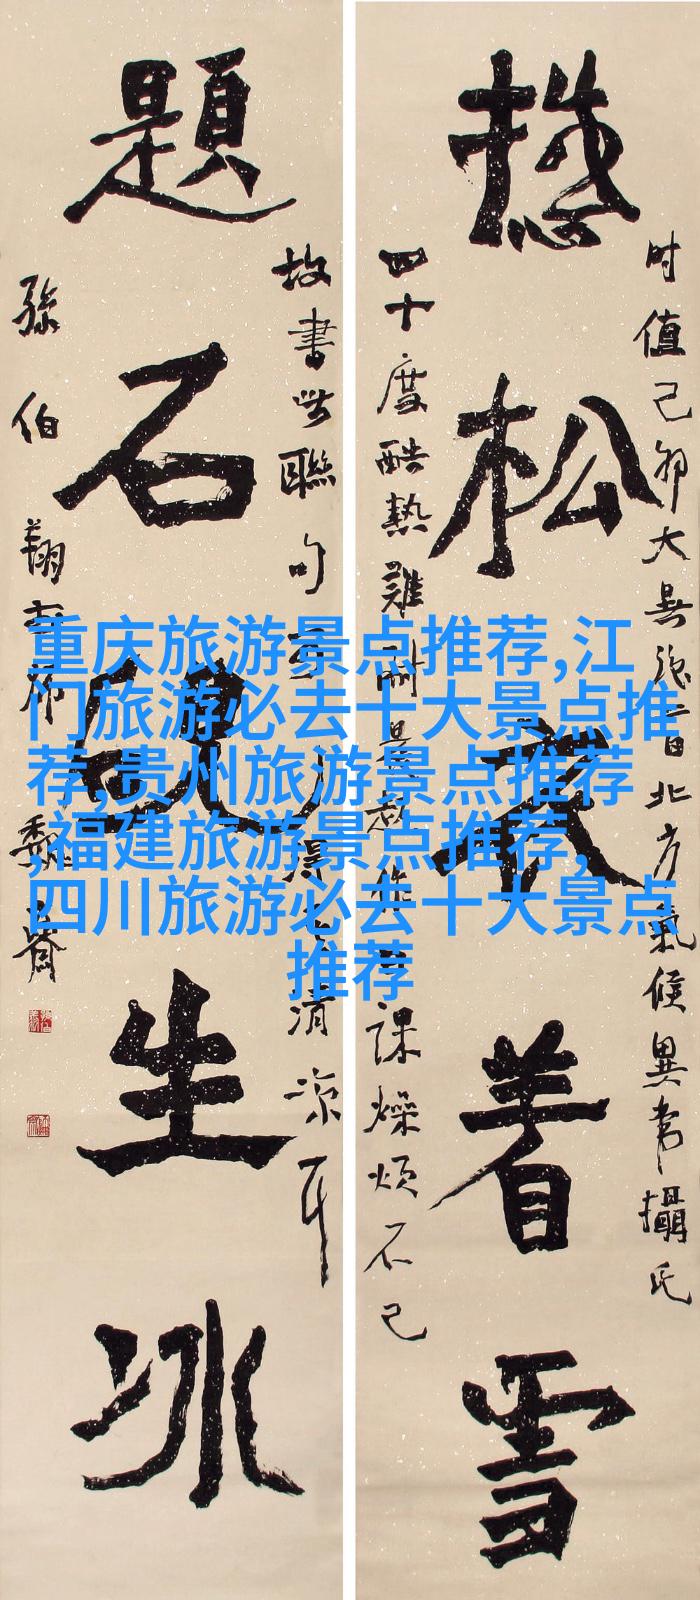 时值己卯大暑日北方氣候異常攝氏
松衣着雪
四十度酷熱難耐作課燥煩不已
故書此聯句得清凉耳
題石生冰
孫伯翔魏齋
重庆旅游景点推荐,江
门旅游必去十大景点推
荐,贵州旅游景点推荐
,福建旅游景点推荐,
四川旅游必去十大景点
推荐